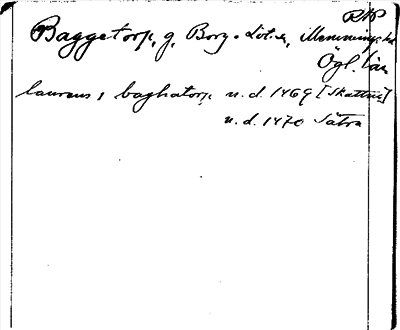 RAP
Baggetorp, g, Borg o Löt sn, Memmings hd
Ögl. län
laurens i baghatorp u. d. 1469 [Skattning]
u. d. 1470 Sätra